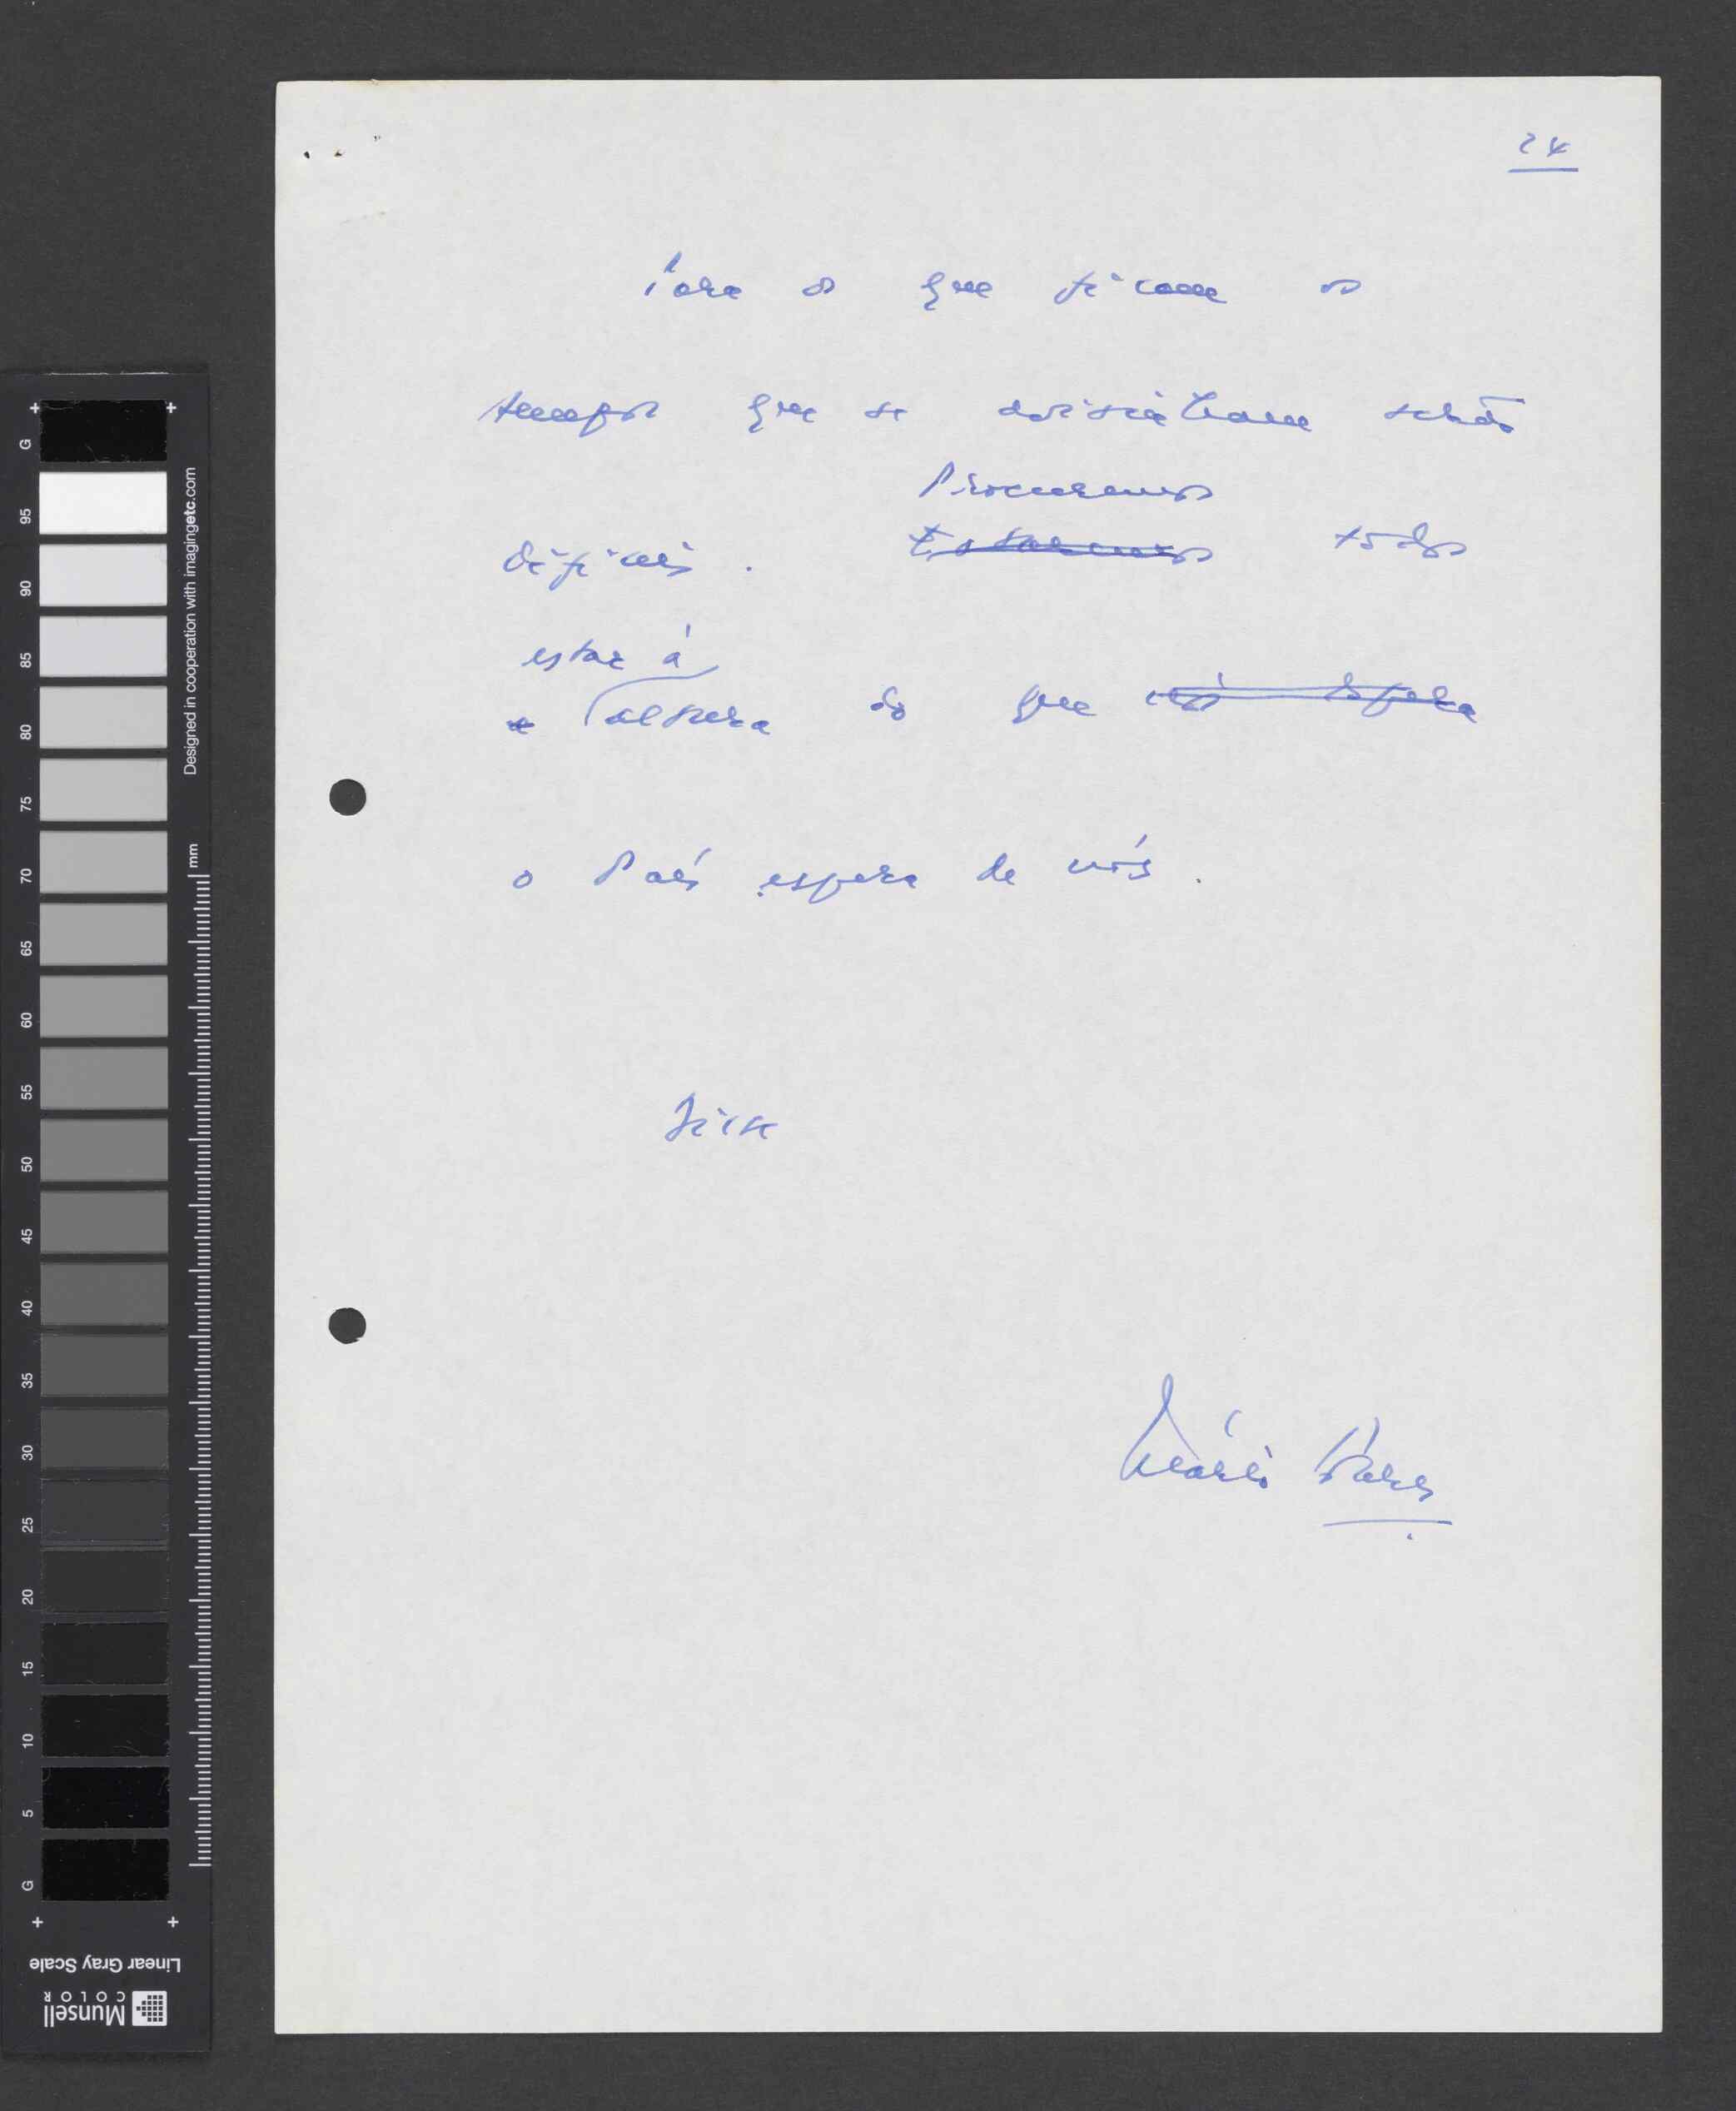 24
Para os que ficam os
tempos que se avizinham serão
Procuremos
difíceis. Estaremos todos
estar à
a altura do que nós espera
o País espera de nós.
Disse
Mário Soares
G
95
90
85
80
75
70
65
60
55
50
45
40
35
30
25
20
15
10
5
G
Designed in cooperation with imagingetc.com
mm
Linear Gray Scale
Munsell
COLOR